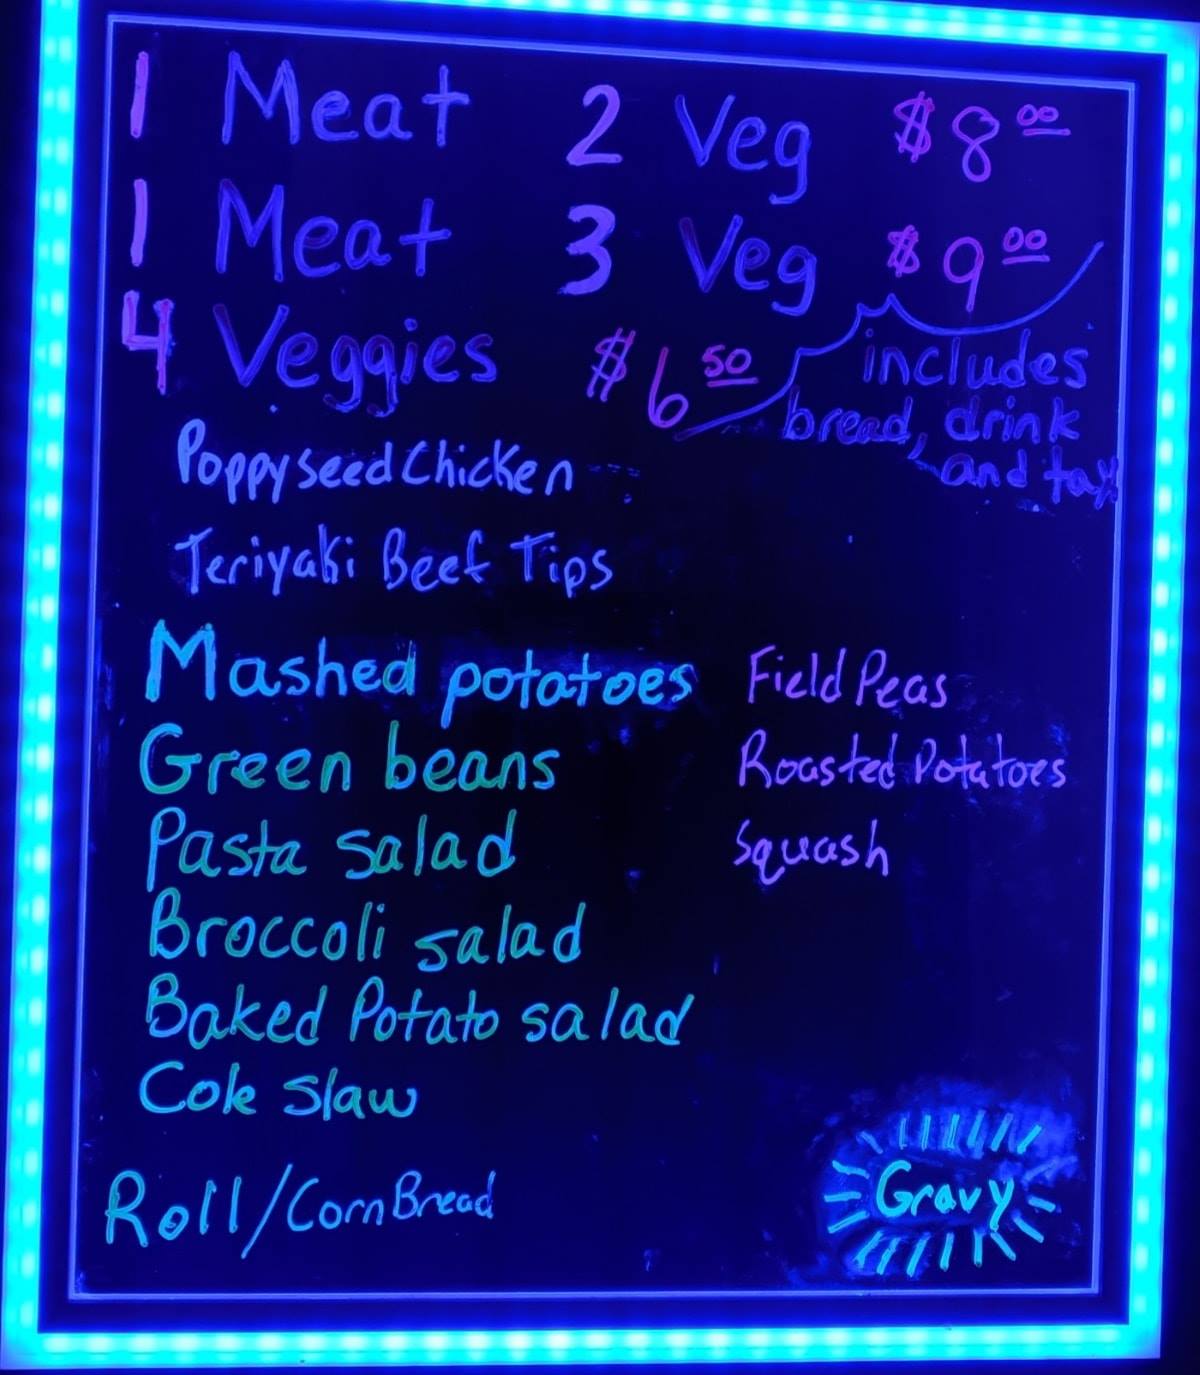 1 Meat 2 Veg $8.00
1 Meat 3 Veg $9.00
4 Veggies $6.50
includes
bread, drink
and tax
Poppyseed Chicken
Teriyaki Beef Tips
Mashed potatoes
Green beans
Pasta salad
Broccoli salad
Baked Potato salad
Cole Slaw
Field Peas
Roasted Potatoes
Squash
Roll/CornBread
Gravy